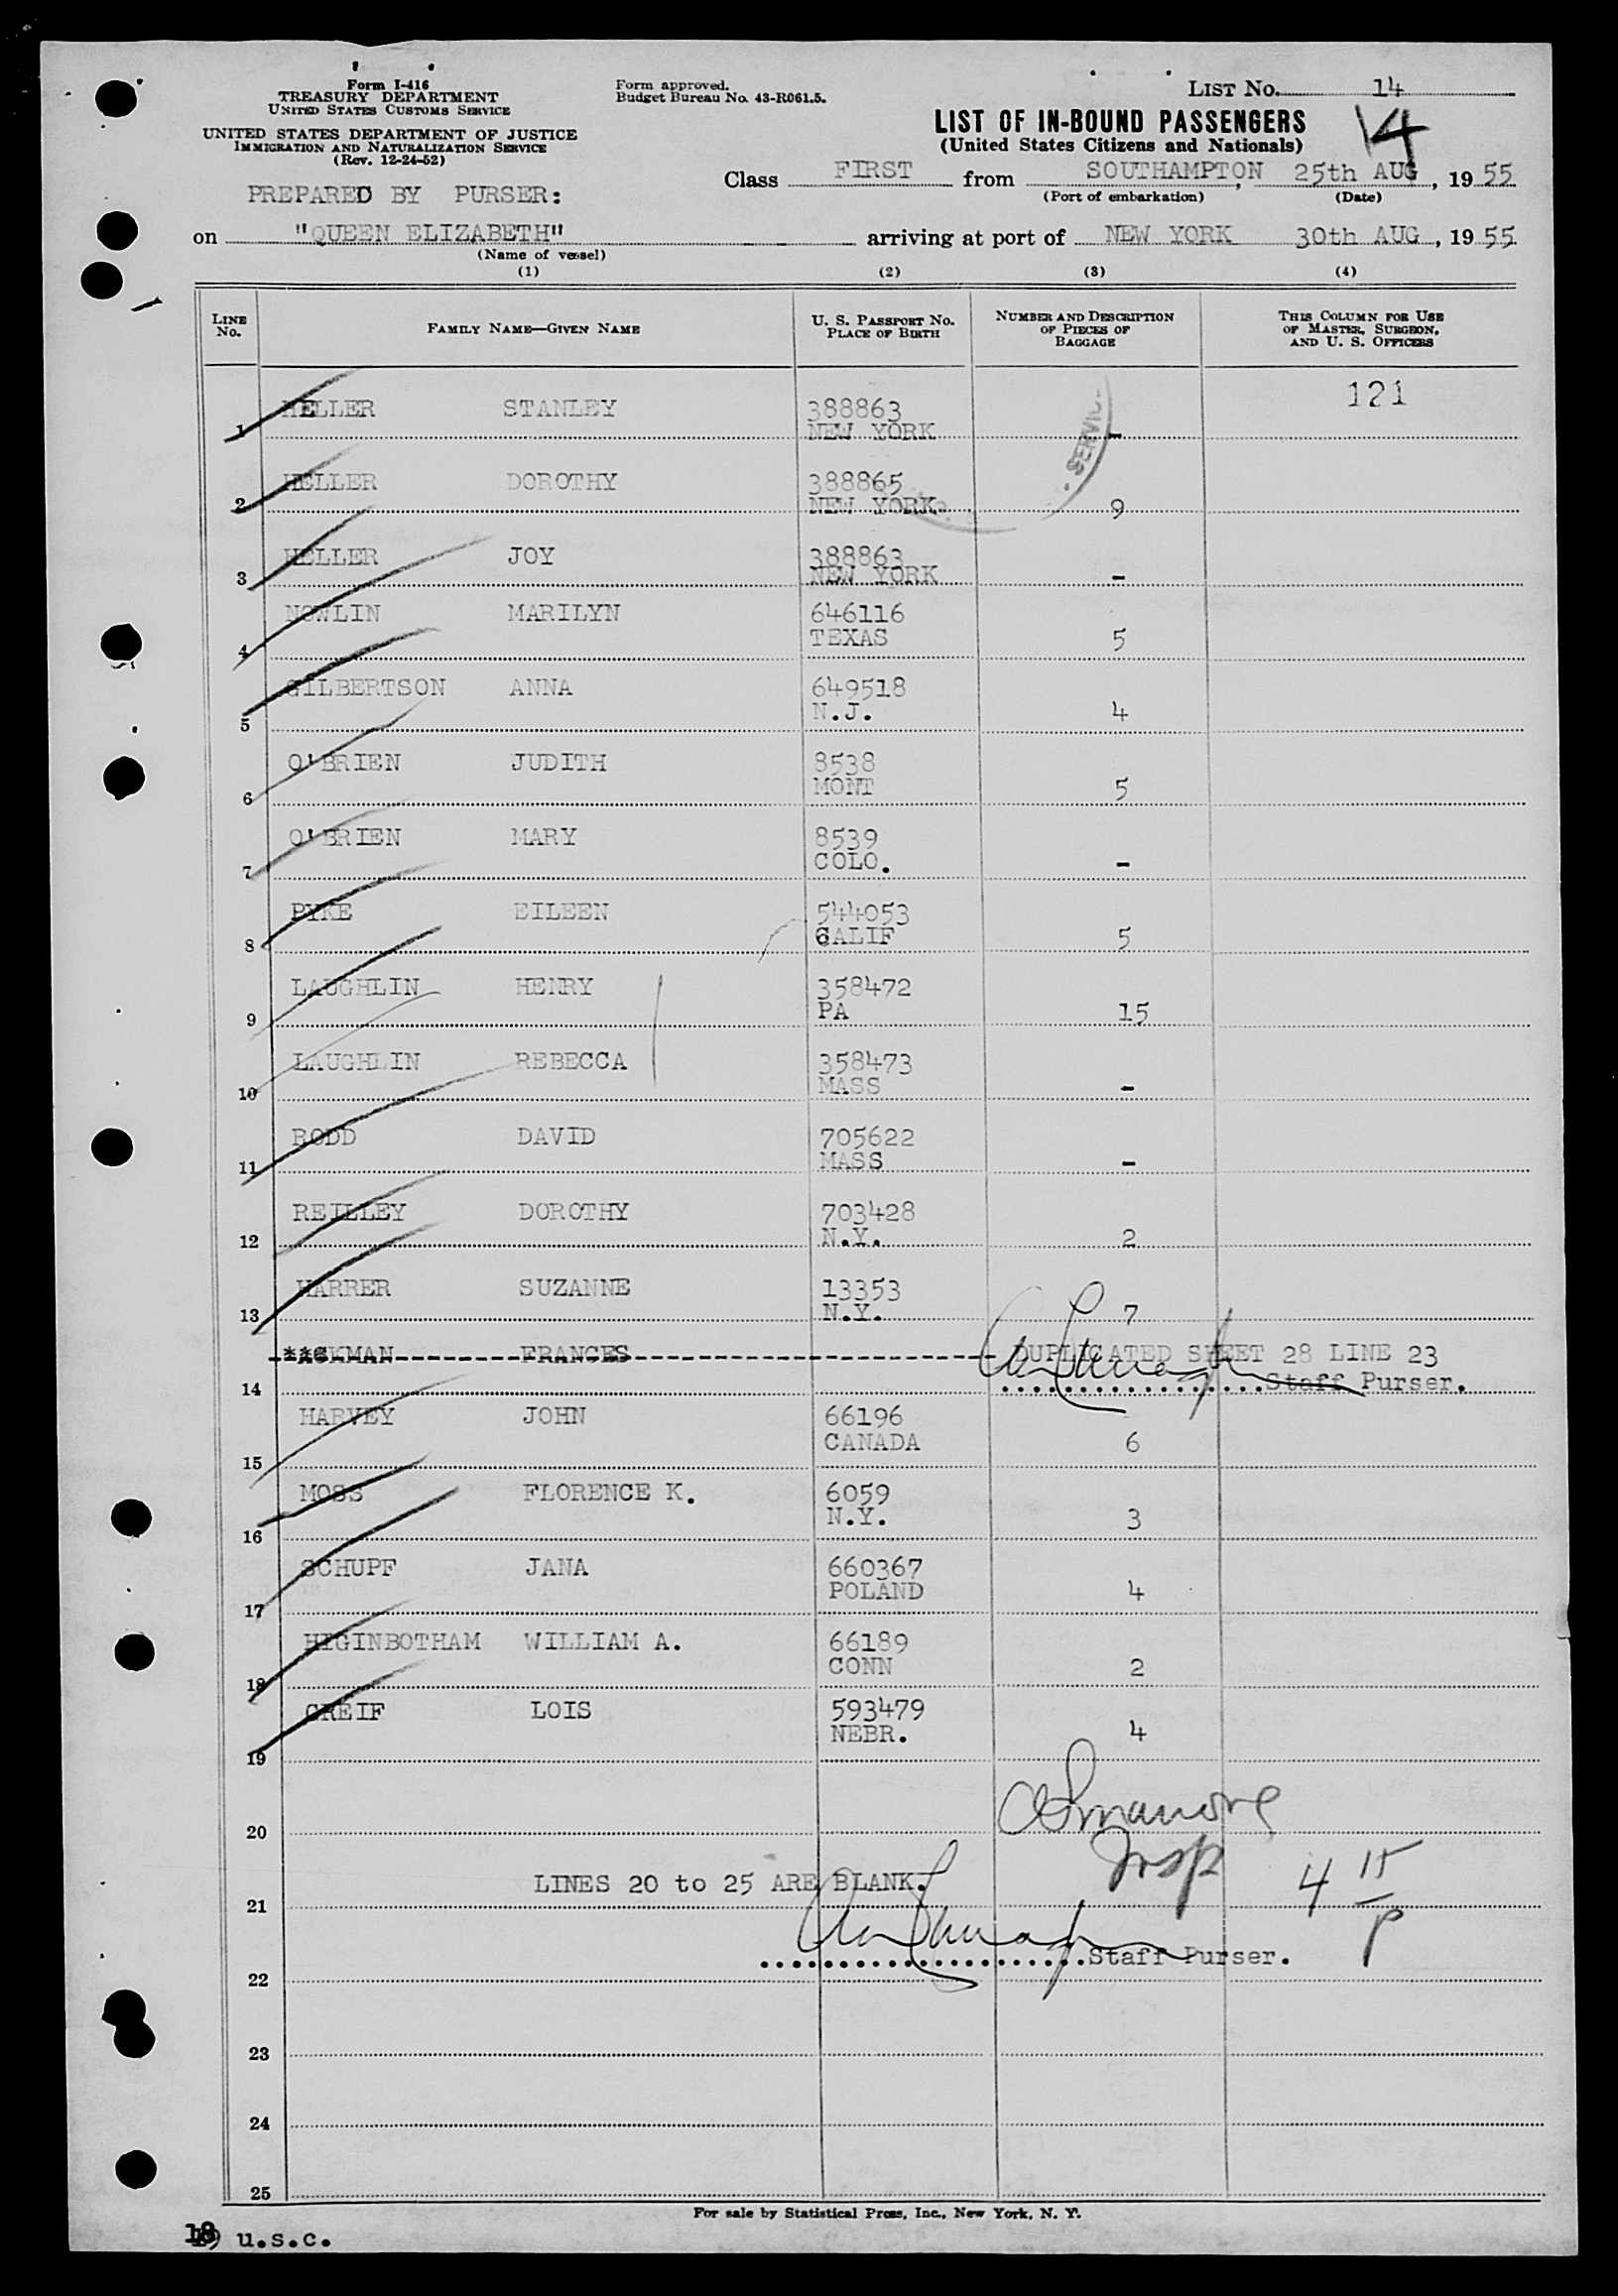 Form I-416
TREASURY DEPARTMENT
UNITED STATES CUSTOMS SERVICE
UNITED STATES DEPARTMENT OF JUSTICE
IMMIGRATION AND NATURALIZATION SERVICE
(Rev. 12-24-52)
Form approved.
Budget Bureau No. 43-R061.5.
LIST NO. 14
14
LIST OF IN-BOUND PASSENGERS
(United States Citizens and Nationals)
Class FIRST from SOUTHAMPTON, 25th AUG, 1955
(Port of embarkation) (Date)
PREPARED BY PURSER:
on "QUEEN ELIZABETH" arriving at port of NEW YORK 30th AUG, 1955
(Name of vessel)
(1) (2) (3) (4)
LINE NO. FAMILY NAME—GIVEN NAME U. S. PASSPORT NO. PLACE OF BIRTH NUMBER AND DESCRIPTION OF PIECES OF BAGGAGE THIS COLUMN FOR USE OF MASTER, SURGEON, AND U. S. OFFICERS
121
SERVIC
1 HELLER STANLEY 388863
NEW YORK -
2 HELLER DOROTHY 388865
NEW YORK 9
3 HELLER JOY 388863
NEW YORK -
4 NOWLIN MARILYN 646116
TEXAS 5
5 GILBERTSON ANNA 649518
N.J. 4
6 O'BRIEN JUDITH 8538
MONT 5
7 O'BRIEN MARY 8539
COLO. -
8 PYKE EILEEN 544053
CALIF 5
9 LAUGHLIN HENRY 358472
PA 15
10 LAUGHLIN REBECCA 358473
MASS -
11 RODD DAVID 705622
MASS -
12 REILLEY DOROTHY 703428
N.Y. 2
13 HARRER SUZANNE 13353
N.Y. 7
**CKMAN FRANCES DUPLICATED SHEET 28 LINE 23
14 Staff Purser.
15 HARVEY JOHN 66196
CANADA 6
16 MOSS FLORENCE K. 6059
N.Y. 3
17 SCHUPF JANA 660367
POLAND 4
18 HIGINBOTHAM WILLIAM A. 66189
CONN 2
19 GREIF LOIS 593479
NEBR. 4
20
Insp
LINES 20 to 25 ARE BLANK. 4 15 P
21
Staff Purser.
22
23
24
25
For sale by Statistical Press, Inc., New York, N. Y.
18 u.s.c.